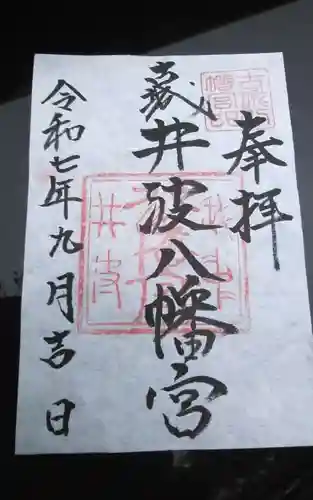 奉拝
古城 井波八幡宮
令和七年九月吉日